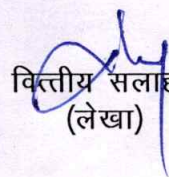 वित्तीय सलाह
(लेखा)